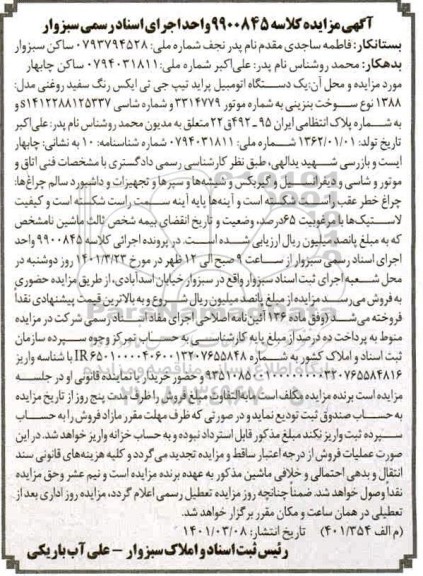 آگهی مزایده کلاسه ۹۹۰۰۸۴۵ واحد اجرای اسناد رسمی سبزوار
بستانکار: فاطمه ساجدی مقدم نام پدر نجف شماره ملی: ۰۷۹۳۷۹۴۵۲۸ ساکن سبزوار
بدهکار: محمد روشناس نام پدر: علی‌اکبر شماره ملی: ۰۷۹۴۰۳۱۸۱۱ ساکن چابهار
مورد مزایده و محل آن: یک دستگاه اتومبیل پراید تیپ جی تی ایکس رنگ سفید روغنی مدل:
۱۳۸۸ نوع سوخت بنزینی به شماره موتور ۳۳۱۴۷۷۹ و شماره شاسی s۱۴۱۲۲۸۸۱۲۵۳۳۷
و به شماره پلاک انتظامی ایران ۹۵ ـ ۴۹۲ق۲۲ متعلق به مدیون محمد روشناس نام پدر: علی‌اکبر
تاریخ تولد: ۱۳۶۲/۰۱/۰۱ شماره ملی: ۰۷۹۴۰۳۱۸۱۱ شماره شناسنامه: ۱۰ به نشانی: چابهار
ایست و بازرسی شهید یدالهی، طبق نظر کارشناسی رسمی دادگستری با مشخصات فنی اتاق و
موتور و شاسی و دیفرانسیل و گیربکس و شیشه‌ها و سپرها و تجهیزات و داشبورد سالم چراغ‌ها:
چراغ خطر عقب راست شکسته است و آینه‌ها پایه آینه سمت راست شکسته است و کیفیت
لاستیک‌ها با مرغوبیت ۶۵ درصد، وضعیت و تاریخ انقضای بیمه شخص ثالث ماشین نامشخص
که به مبلغ پانصد میلیون ریال ارزیابی شده است. در پرونده اجرائی کلاسه ۹۹۰۰۸۴۵ واحد
اجرای اسناد رسمی سبزوار از ساعت ۹ صبح الی ۱۲ ظهر در مورخ ۱۴۰۱/۳/۲۳ روز دوشنبه در
محل شعبه اجرای ثبت اسناد سبزوار واقع در سبزوار خیابان اسدآبادی، از طریق مزایده حضوری
به فروش می‌رسد. مزایده از مبلغ پانصد میلیون ریال شروع و به بالاترین قیمت پیشنهادی نقداً
فروخته می‌شد (وفق ماده ۱۳۶ آئین نامه اصلاحی اجرای مفاد اسناد رسمی شرکت در مزایده
منوط به پرداخت ده درصد از مبلغ پایه کارشناسی به حساب تمرکز وجوه سپرده سازمان
ثبت اسناد و املاک کشور به شماره IR۶۵۰۱۰۰۰۰۴۰۶۰۰۱۳۲۰۷۶۵۵۸۴۸ با شناسه واریز
و حضور خریدار یا نماینده قانونی او در جلسه
مزایده است برنده مزایده مکلف است مابه‌التفاوت مبلغ فروش را ظرف مدت پنج روز از تاریخ مزایده
به حساب صندوق ثبت تودیع نماید و در صورتی که ظرف مهلت مقرر مازاد فروش را به حساب
سپرده ثبت واریز نکند مبلغ مذکور قابل استرداد نبوده و به حساب خزانه واریز خواهد شد. در این
صورت عملیات فروش از درجه اعتبار ساقط و مزایده تجدید می‌گردد و کلیه هزینه‌های قانونی سند
انتقال و بدهی احتمالی و خلافی ماشین مذکور به عهده برنده مزایده است و نیم عشر و حق مزایده
نقداً وصول خواهد شد. ضمناً چنانچه روز مزایده تعطیل رسمی اعلام گردد، مزایده روز اداری بعد از
تعطیلی در همان ساعت و مکان مقرر برگزار خواهد شد.
(م الف ۴۰۱/۳۵۴) تاریخ انتشار: ۱۴۰۱/۰۳/۰۸
رئیس ثبت اسناد و املاک سبزوار – علی آب باریکی